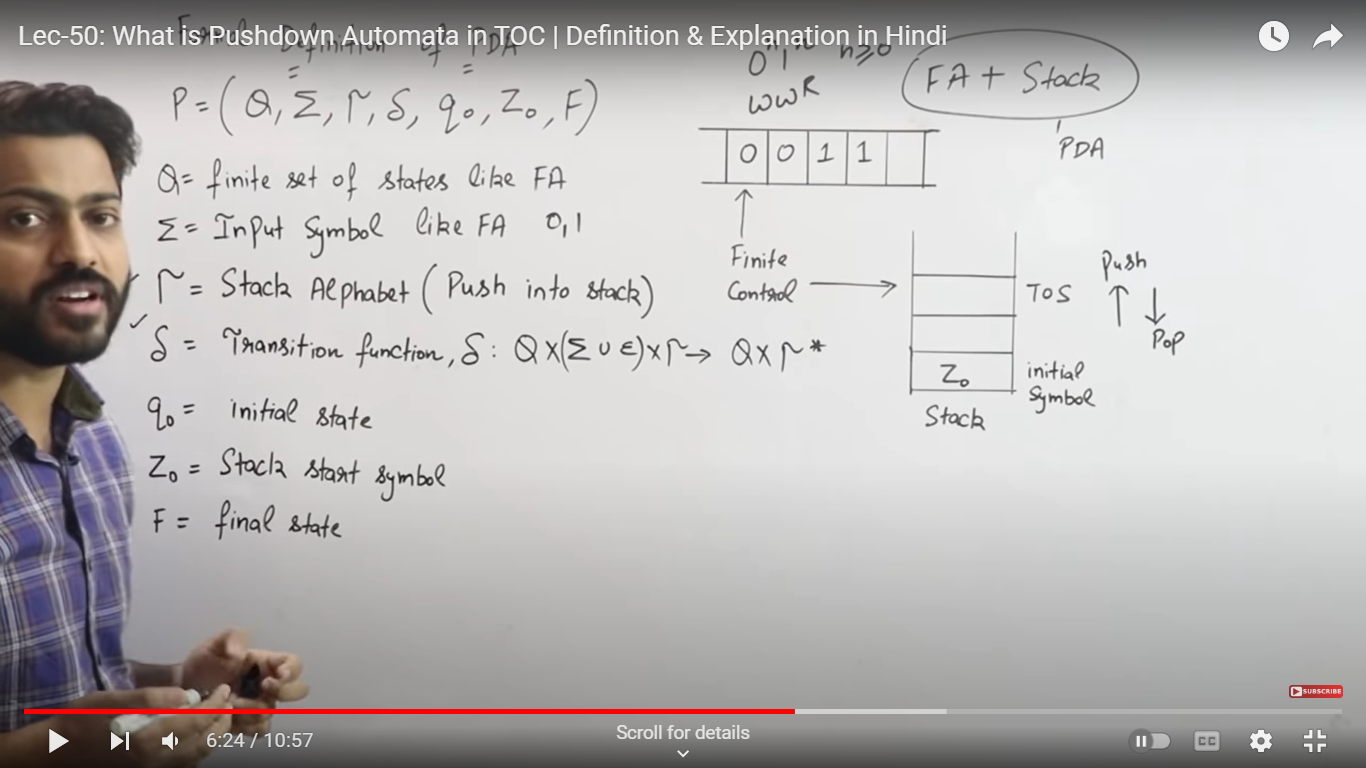 Lec-50: What is Pushdown Automata in TOC | Definition & Explanation in Hindi
Formal Definition of PDA
P = (Q, Σ, Γ, δ, q₀, Z₀, F)
Q = finite set of states like FA
Σ = Input Symbol like FA 0,1
✓ Γ = Stack Alphabet (Push into stack)
✓ δ = Transition function, δ: Q×(Σ∪ε)×Γ→ Q×Γ*
q₀ = initial state
Z₀ = Stack start symbol
F = final state
0ⁿ1ⁿ n≥0
WWR
FA + Stack
PDA
0 0 1 1
Finite
Control
TOS
Z₀
initial
Symbol
Stack
Push
Pop
SUBSCRIBE
6:24 / 10:57
Scroll for details
CC